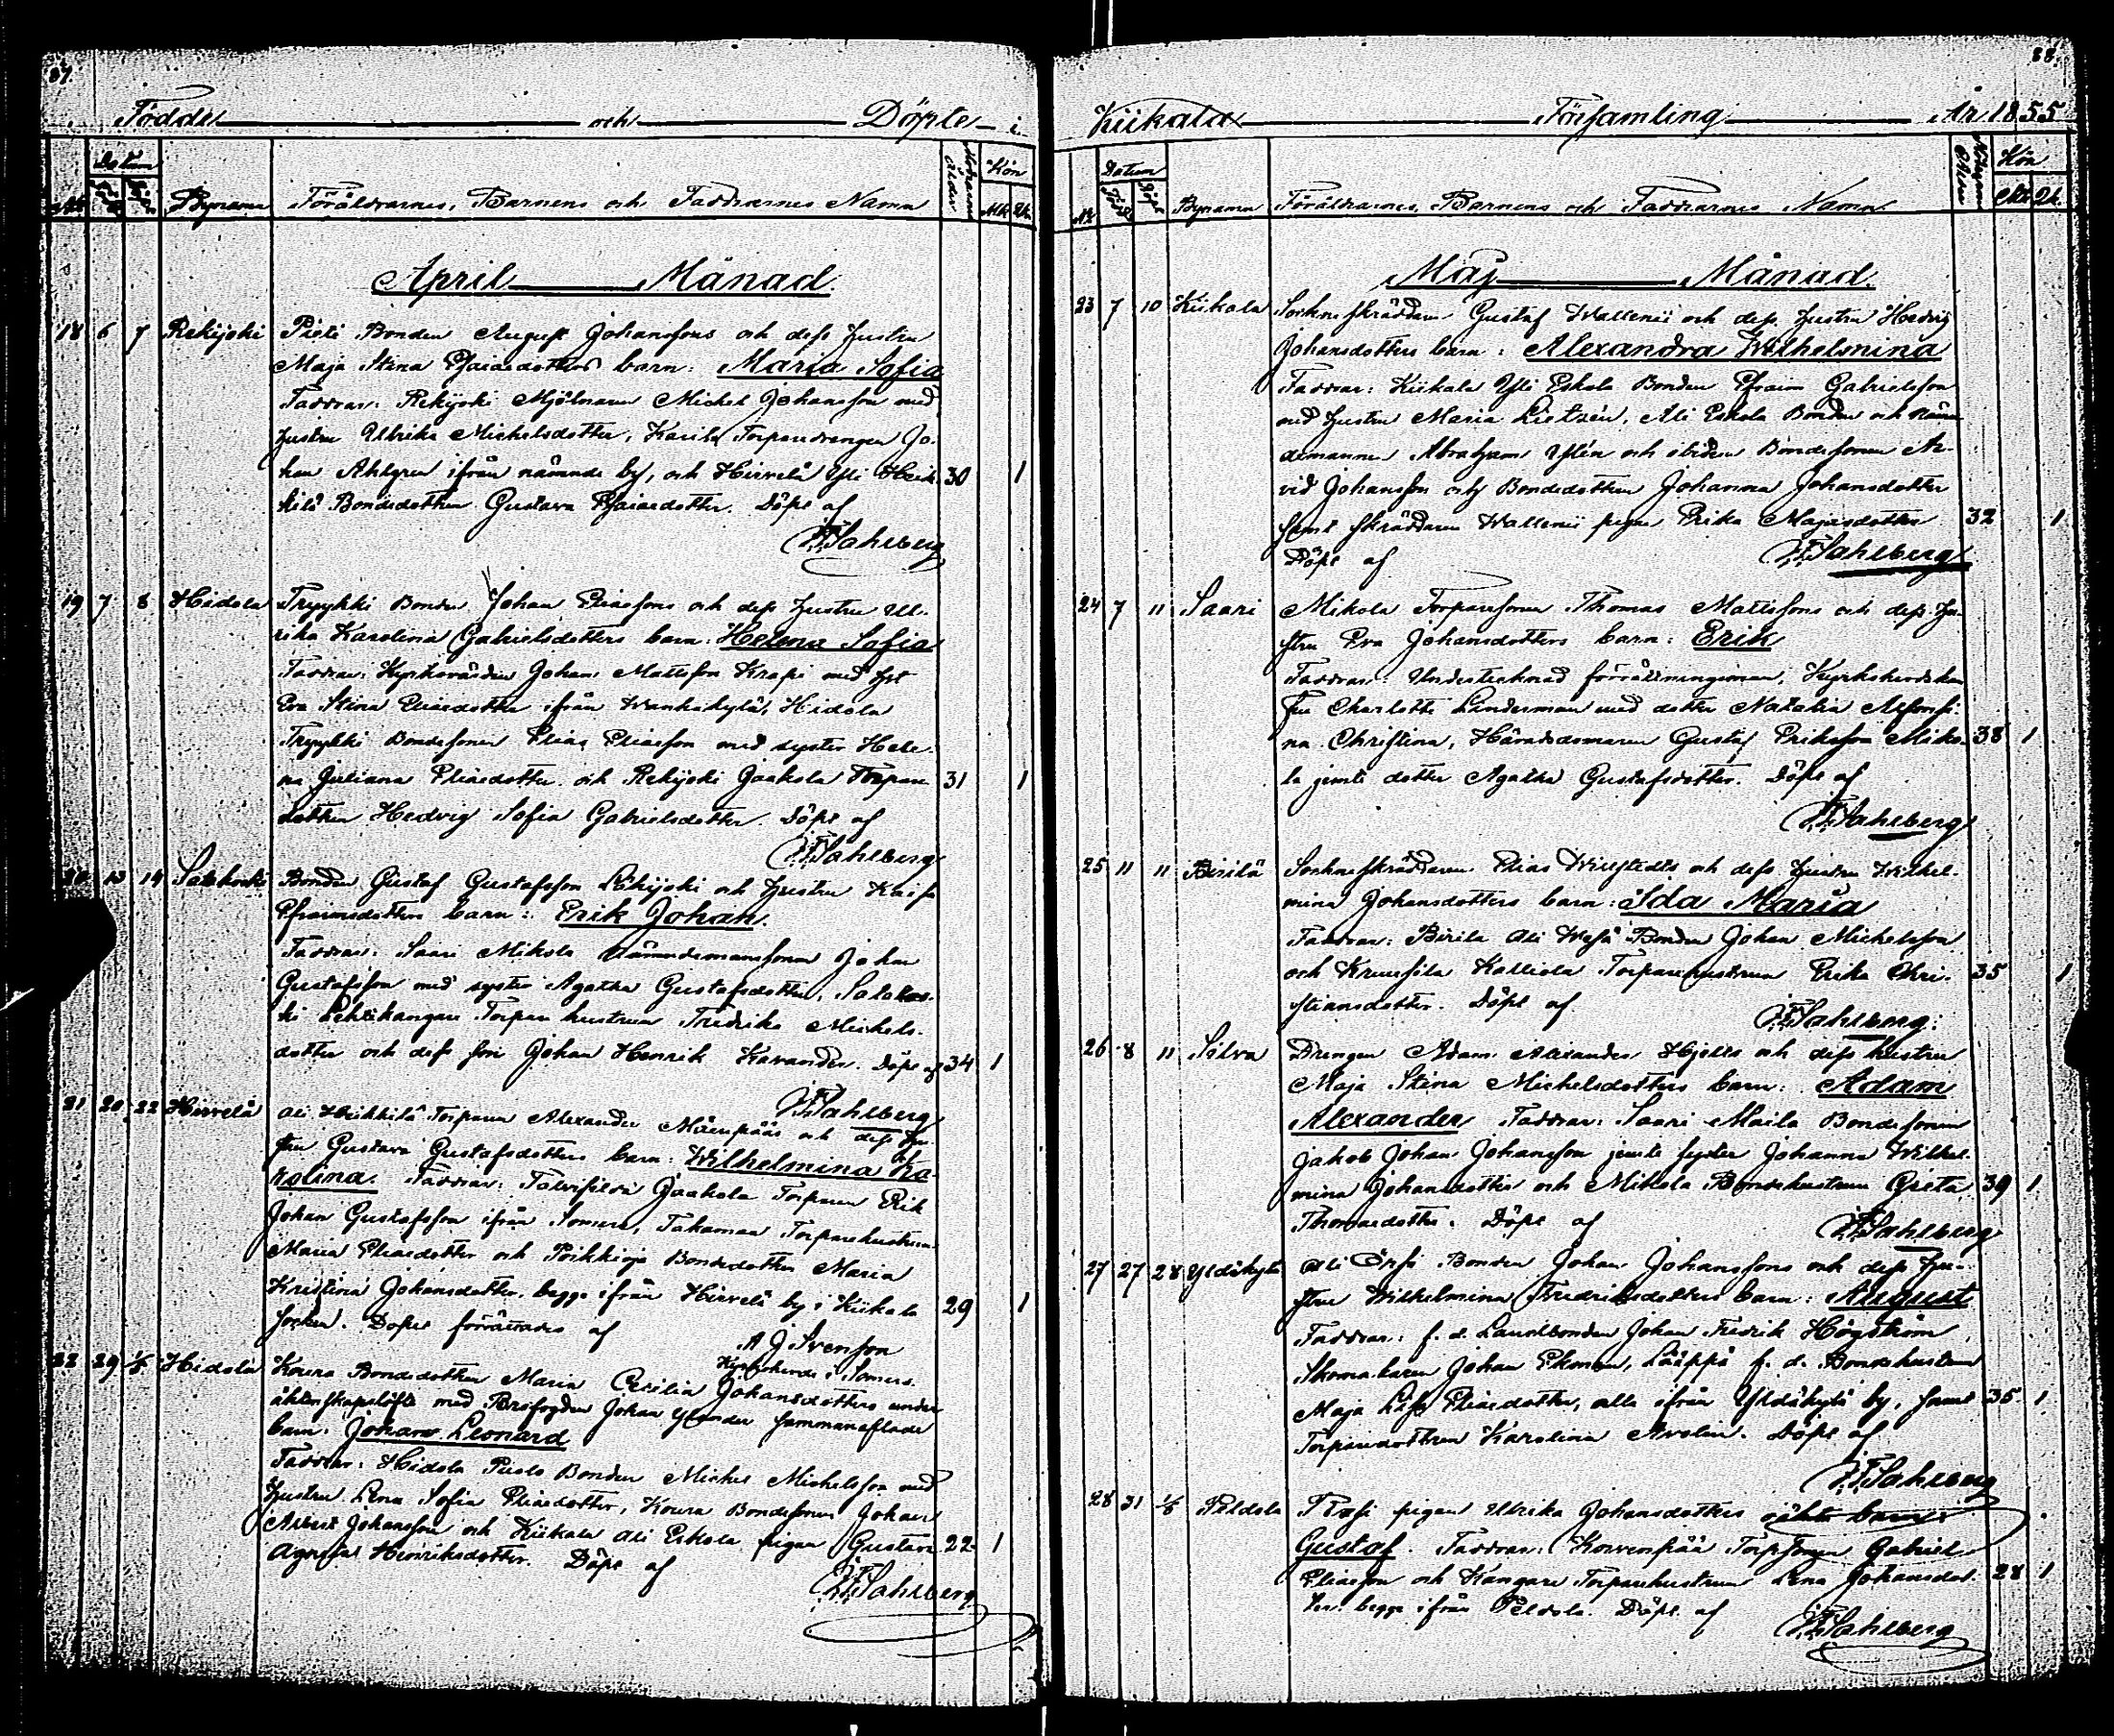 87.
Födde och Döpte i
Datum
Modrens ålder
Kön
Bynamn
Föräldrarnes, Barnens och Faddrarnes Namn
Mk. Qk.
April Månad.
18 6 7 Rekijoki Pieti Bonden August Johanssons och dess hustru
Maja Stina Esaiaedotters barn: Maria Sofia
Faddrar: Rekijoki Mjölnaren Michel Johansson med
hustru Ulrika Michelsdotter, Torparedrengen Jo-
han Ahlgren ifrån nämnde by, och Hirvelä Yli Heik- 30 1
kilä Bondedottren Gustava Esaiaedotter. Döpt af
F. Sahlberg
19 7 8 Hidola Tryykki Bonden Johan Eliaesons och dess hustru Ul-
rika Karolina Gabrielsdotters barn: Helena Sofia
Faddrar: Kyrkovärden Johan Mattsson Krapi med hst
Eva Stina Eliaedotter ifrån Wankakylä, Hidola
Tryykki Bondesonen Elias Eliaeson med syster Hele-
na Juliana Eliaedotter och Rekijoki Jaakola Torpare 31 1
dottren Hedvig Sofia Gabrielsdotter. Döpt af
F. Sahlberg
14 Bonden Gustaf Gustafsson och hustru Kaisa
Efraimsdotters barn: Erik Johan.
Faddrar: Saari Mikola Nämndemanssonen Johan
Gustafsson med syster Agatha Gustafsdotter, Salakos-
ki Lehtikangas Torpare hustrun Fredrika Michels-
dotter och dess son Johan Henrik Kavander. Döpt af 34 1
F. Sahlberg
21 20 22 Hirvelä Ali Heikkilä Torparen Alexander Mäenpääs och dess hu-
stru Gustava Gustafsdotters barn: Wilhelmina Ka-
rolina. Faddrar: Talvisilda Jaakola Torparen Erik
Johan Gustafsson ifrån Somero, Takamaa Torparehustrun
Maria Eliaedotter och Poikkioja Bondedottren Maria
Kristina Johansdotter, begge ifrån Hirvelä by i Kiikala 29 1
socken. Dopet förrättades af
A J Svenson
Kyrkoherde i Somero.
22 29 1/5 Hidola Koura Bondedottren Maria Cecilia Johansdotters under
äktenskapslöfte med Brofogden Johan sammanaflade
barn: Johan Leonard
Faddrar: Hidola Bonden Michel Michelsson med
hustru Lena Sofia Eliaedotter, Koura Bondesonen Johan
Albert Johansson och Kiikala Ali Eskola pigan Gustava 22 1
Agnesa Henriksdotter. Döpt af
F. Sahlberg
88.
Kiikala Församling År 1855
Datum
Mödrarnes ålder
Kön
Nr Född Döpt Bynamn Föräldrarnes, Barnens och Faddrarnes Namn Mk. Qk.
Maj Månad.
23 7 10 Kiikala Sockneskräddaren Gustaf Wallenii och dess hustru Hedvig
Johansdotters barn: Alexandra Wilhelmina
Faddrar: Kiikala Yli Eskola Bonden Efraim Gabrielsson
med hustru Maria Lietzén, Ali Eskola Bonden och Näm-
demannen Abraham Uflén och ibidem Bondesonen Ar-
vid Johansson och Bondedottren Johanna Johansdotter
samt skräddaren Wallenii pigan Erika Majasdotter 32 1
Döpt af F. Sahlberg
24 7 11 Saari Mikola Torparesonen Thomas Mattssons och dess hu-
stru Eva Johansdotters barn: Erik
Faddrar: Undertecknad förrättningsman, Kyrkoherdskan
Fru Charlotta Linderman med dotter Natalia Alfonsi-
na Christina, Häradsdomaren Gustaf Eriksson Miko- 38 1
la jemte dotter Agatha Gustafsdotter. Döpt af
F. Sahlberg
25 11 11 Pirilä Sockneskräddaren Elias Willstedts och dess hustru Wilhel-
mina Johansdotters barn: Ida Maria
Faddrar: Pirilä Ali Wesä Bonden Johan Michelsson
och Kruusila Kalliola Torparehustrun Erika Chri- 35 1
stiansdotter. Döpt af
F. Sahlberg.
26 8 11 Silva Drengen Adam Alexander Hjelts och dess hustru
Maja Stina Michelsdotters barn: Adam
Alexander Faddrar: Saari Maila Bondesonen
Jakob Johan Johansson jemte syster Johanna Wilhel-
mina Johansdotter och Mikola Bondehustrun Greta 39 1
Thomasdotter. Döpt af
F. Sahlberg
27 27 28 Yldäkylä Ali Örsi Bonden Johan Johanssons och dess hu-
stru Wilhelmina Fredriksdotters barn: August
Faddrar: f. d. Landbonden Johan Fredrik Högström
Skomakaren Johan Ekman, Lääppä f. d. Bondehustrun
Maja Lisa Eliaedotter, alla ifrån Yldäkylä by, samt 35 1
Torparedottren Karolina Avelin. Döpt af
F. Sahlberg
28 31 1/6 Peldola pigan Ulrika Johansdotters oäkta barn:
Gustaf. Faddrar: Korvenpää Torpsonen Gabriel
Eliaeson och Kangare Torparehustrun Lena Johansdot- 28 1
ter. begge ifrån Peldola. Döpt af
F. Sahlberg